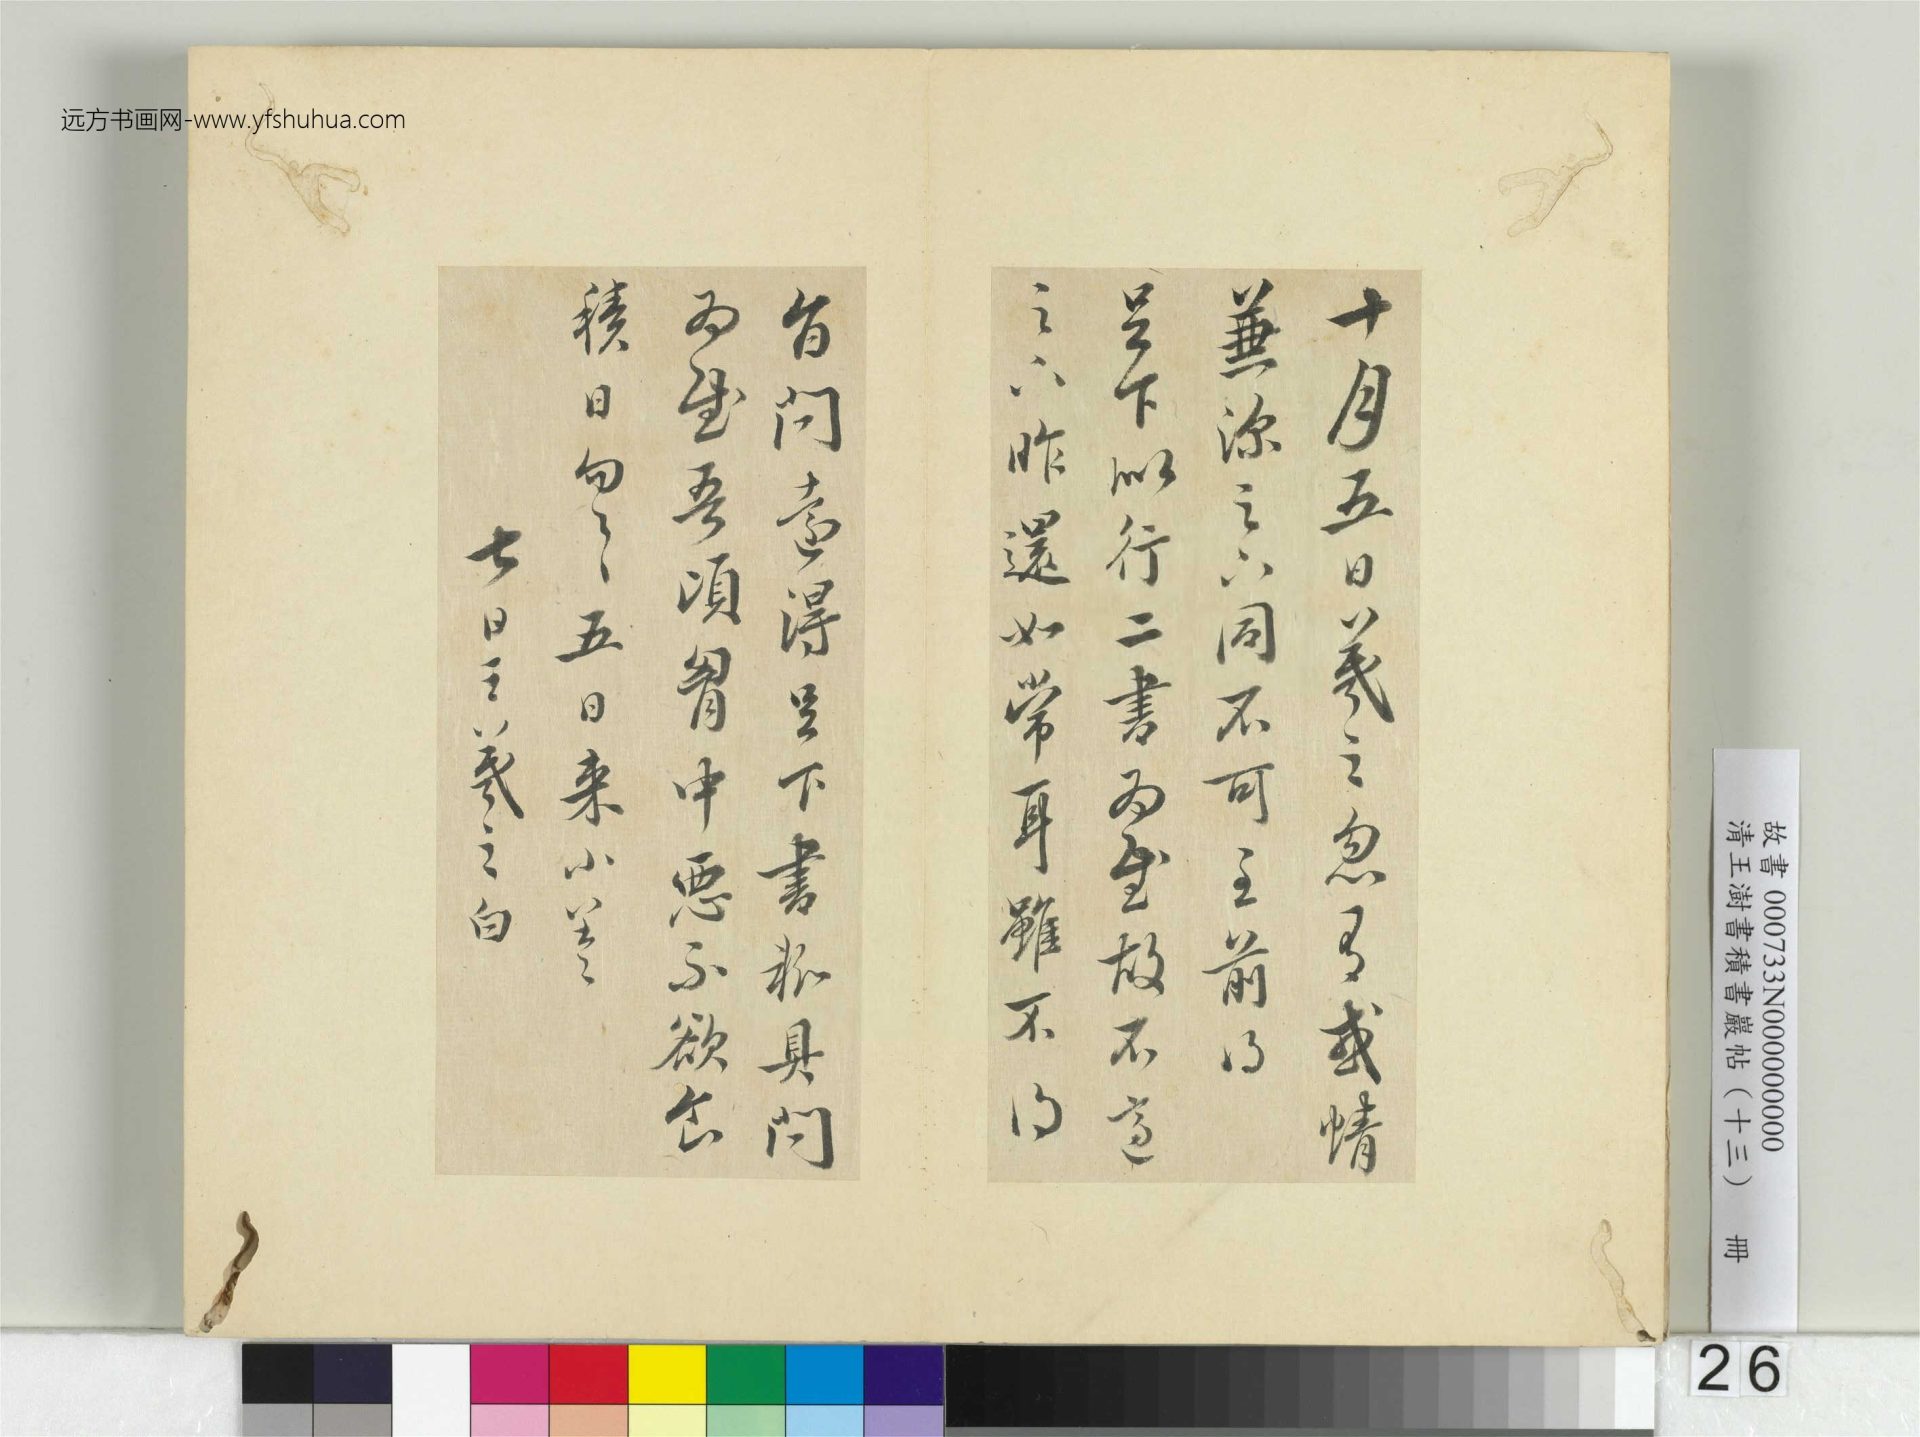 十月五日羲之忽有感情
兼深之亦同不可言前得
足下以行二書為慰故不適
之亦昨還如常耳雖不得
旨問遠得足下書粗具問
為慰吾頃胃中惡不欲食
積日勿勿五日來小差
七日王羲之白
远方书画网-www.yfshuhua.com
故書 000733N000000000
清王澍書積書巖帖(十三) 冊
26